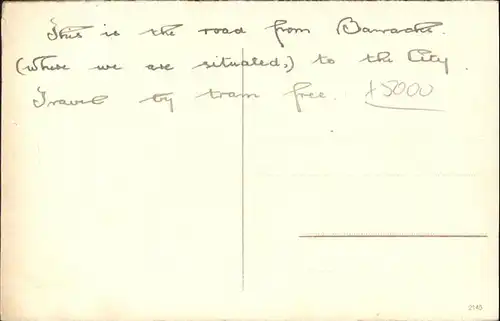 This is the road from Barracks.
(where we are situated,) to the City.
Travel by tram free. x5000
2140